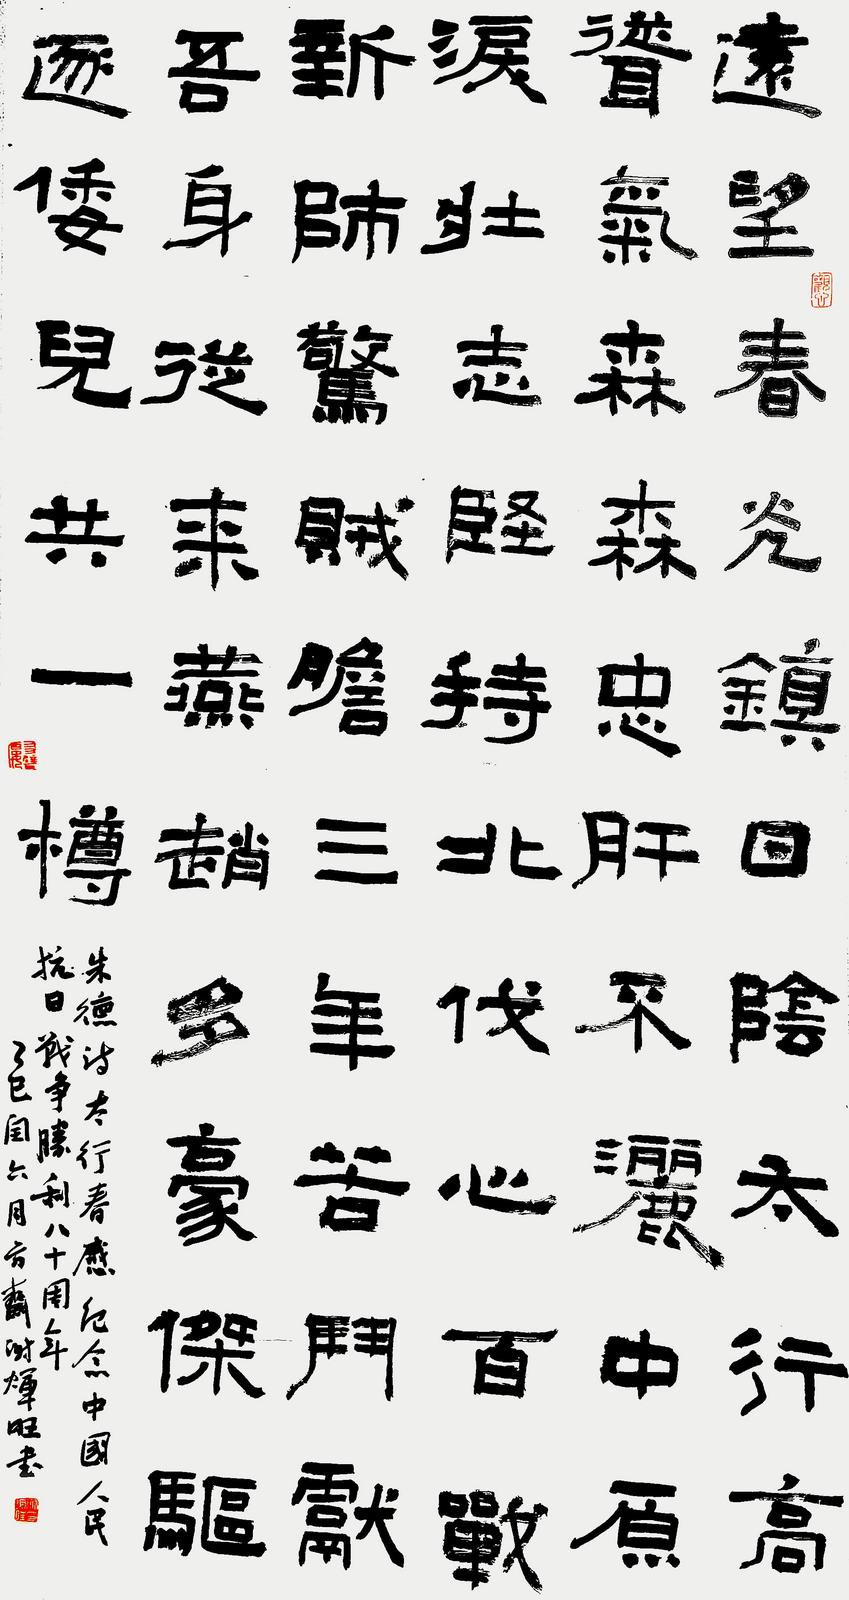 遠望春光鎮日陰太行高
聳氣森森忠肝不灑中原
淚壯志堅持北伐心百戰
新師驚賊膽三年苦鬥獻
吾身從来燕趙多豪傑驅
逐倭兒共一樽
朱德詩太行春感紀念中國人民
抗日戰争勝利八十周年
乙巳闰六月方齋謝輝旺书